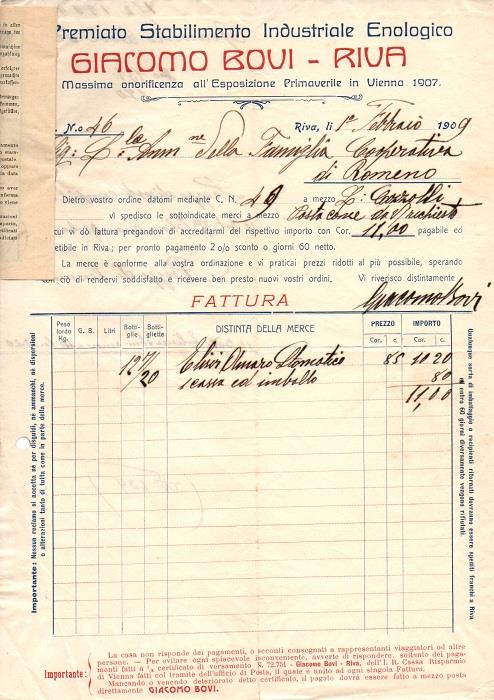 Premiato Stabilimento Industriale Enologico
GIACOMO BOVI - RIVA
Massima onorificenza all'Esposizione Primaverile in Vienna 1907.
N.o 46
Riva, li 1o Febbraio 1909
Della Famiglia Cooperativa
di Romeno
Dietro vostro ordine datomi mediante C. N. 49 a mezzo
vi spedisco le sottoindicate merci a mezzo Posta come
cui vi dò fattura pregandovi di accreditarmi del rispettivo importo con Cor. 11,00 pagabile ed
etibile in Riva; per pronto pagamento 2% sconto o giorni 60 netto.
La merce è conforme alla vostra ordinazione e vi praticai prezzi ridotti al più possibile, sperando
con ciò di rendervi soddisfatto e ricevere ben presto nuovi vostri ordini. Vi riverisco distintamente
Giacomo Bovi
FATTURA
Peso lordo Kg. G. B. Litri Bottiglie Bottigliette DISTINTA DELLA MERCE PREZZO Cor. c. IMPORTO Cor. c.
12 1/1 Elisir Amaro Stomatico 85 10 20
1/20 scassa ed imballo 80
11,00
Importante: Nessun reclamo si accetta nè per disguidi, nè ammanchi, nè dispersioni
o alterazioni tanto di tutta come in parte della merce.
Qualunque sorta di imballaggio o recipienti ritornati dovranno essere spediti franchi a Riva
entro 60 giorni diversamente vengono rifiutati.
Importante:
La casa non risponde dei pagamenti, o acconti consegnati a rappresentanti viaggiatori od altre
persone. — Per evitare ogni spiacevole inconveniente, avverte di rispondere, soltanto dei pagamenti
fatti a 1/2 certificato di versamento N. 72.751 - Giacomo Bovi - Riva, dell'I. R. Cassa Risparmio
di Vienna fatti col tramite dell'ufficio di Posta, il quale è unito ad ogni singola Fattura.
Mancando o venendo deteriorato detto certificato, il pagato dovrà essere fatto a mezzo posta
direttamente GIACOMO BOVI.